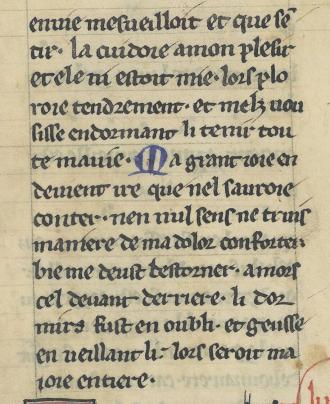 enuie mesueilloit et que sē
tir · la cuidoie a mon plesir
et ele ni estoit mie · lors plo
roie tendrement · et melz uou
sisse endormant li tenir tou
te ma uie · Ma grant ioie en
deuient ire que nel sauroie
conter · nen nul sens ne truis
maniere de ma dolor conforter ·
bie me deust bestorner · amors
cel deuant derriere · li dor
mirs fust en oubli · et geusse
en ueillant li · lors seroit ma
ioie entiere ·